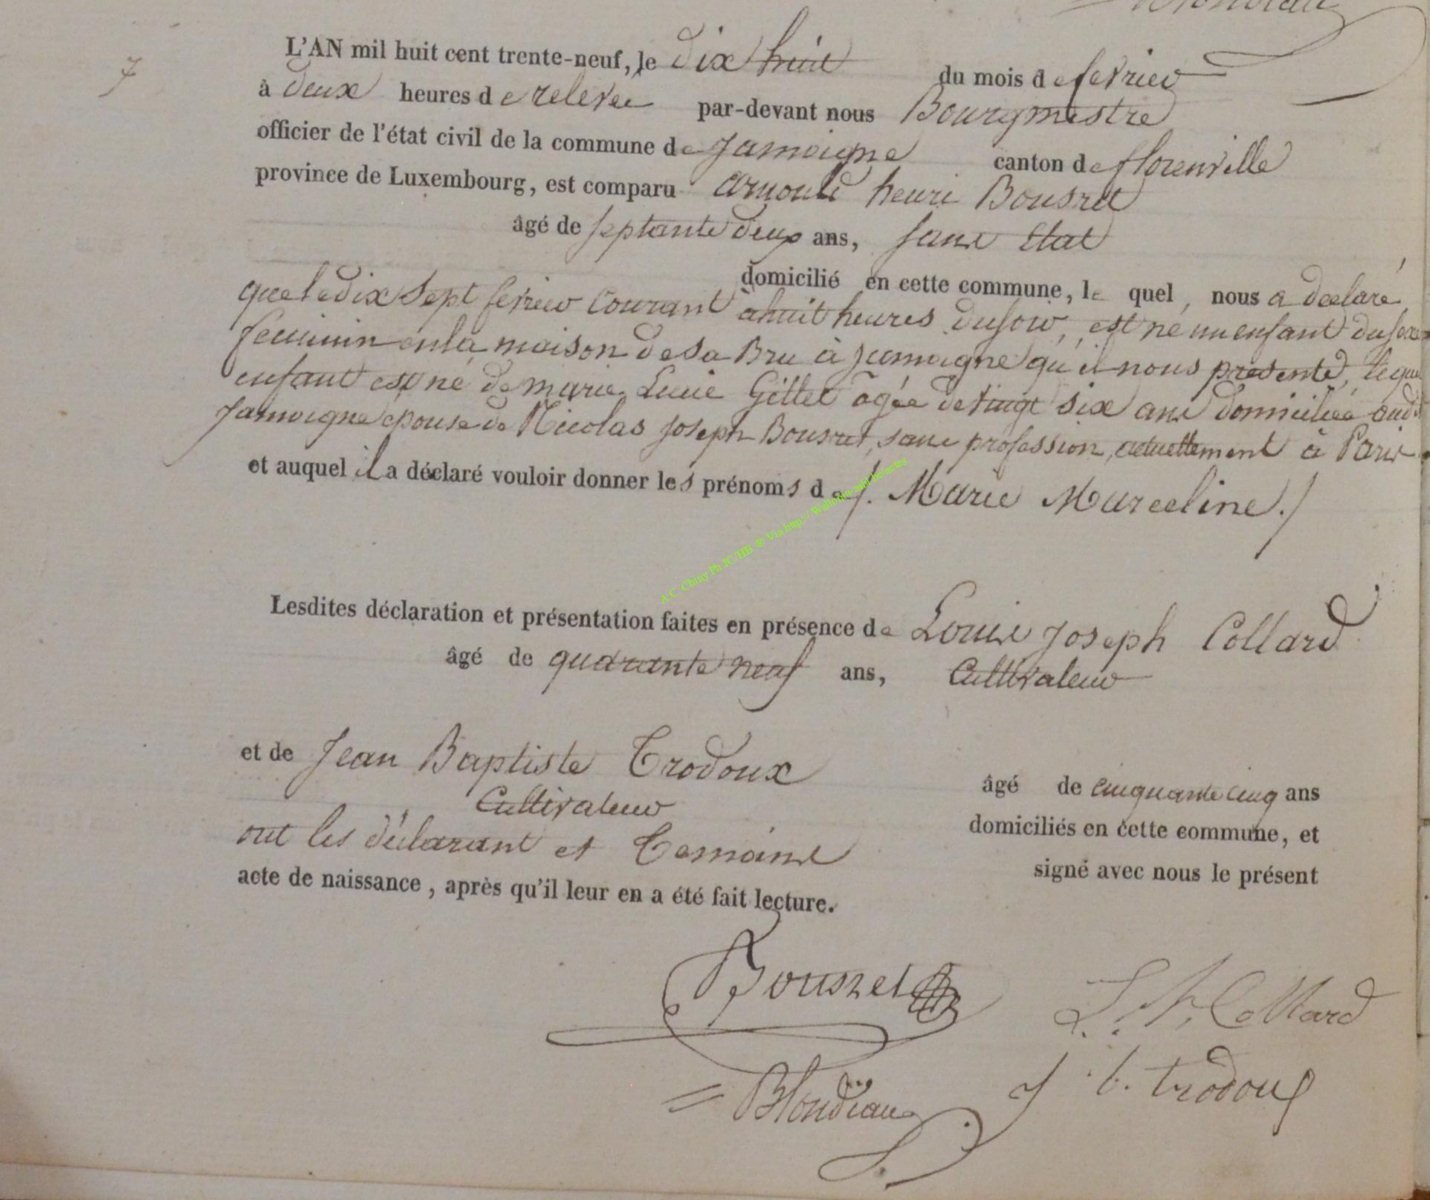 7
L'AN mil huit cent trente-neuf, le dix huit du mois de fevrier
à deux heures de relevee par-devant nous Bourgmestre
officier de l'état civil de la commune de Jamoigne canton de florenville
province de Luxembourg, est comparu arnould henri Bousret
âgé de septante deux ans, sans Etat
domicilié en cette commune, le quel, nous a déclaré
que le dix sept fevrier courant à huit heures du soir, est né un enfant du sexe
feminin en la maison de sa Bru à jamoigne qu'il nous présenté, lequel
enfant est né de marie Lucie Gillet âgée de vingt six ans domiciliée audit
Jamoigne epouse de Nicolas Joseph Bousret, sans profession, actuellement à Paris
et auquel il a déclaré vouloir donner les prénoms de /. Marie Marceline./
Lesdites déclaration et présentation faites en présence de Louis Joseph Collard
âgé de quarante neuf ans, Cultivateur
et de Jean Baptiste Trodoux âgé de cinquante cinq ans
Cultivateur domiciliés en cette commune, et
ont les déclarant et Temoins signé avec nous le présent
acte de naissance, après qu'il leur en a été fait lecture.
Bousret L. J. Collard
Blondiau J. b. trodoux